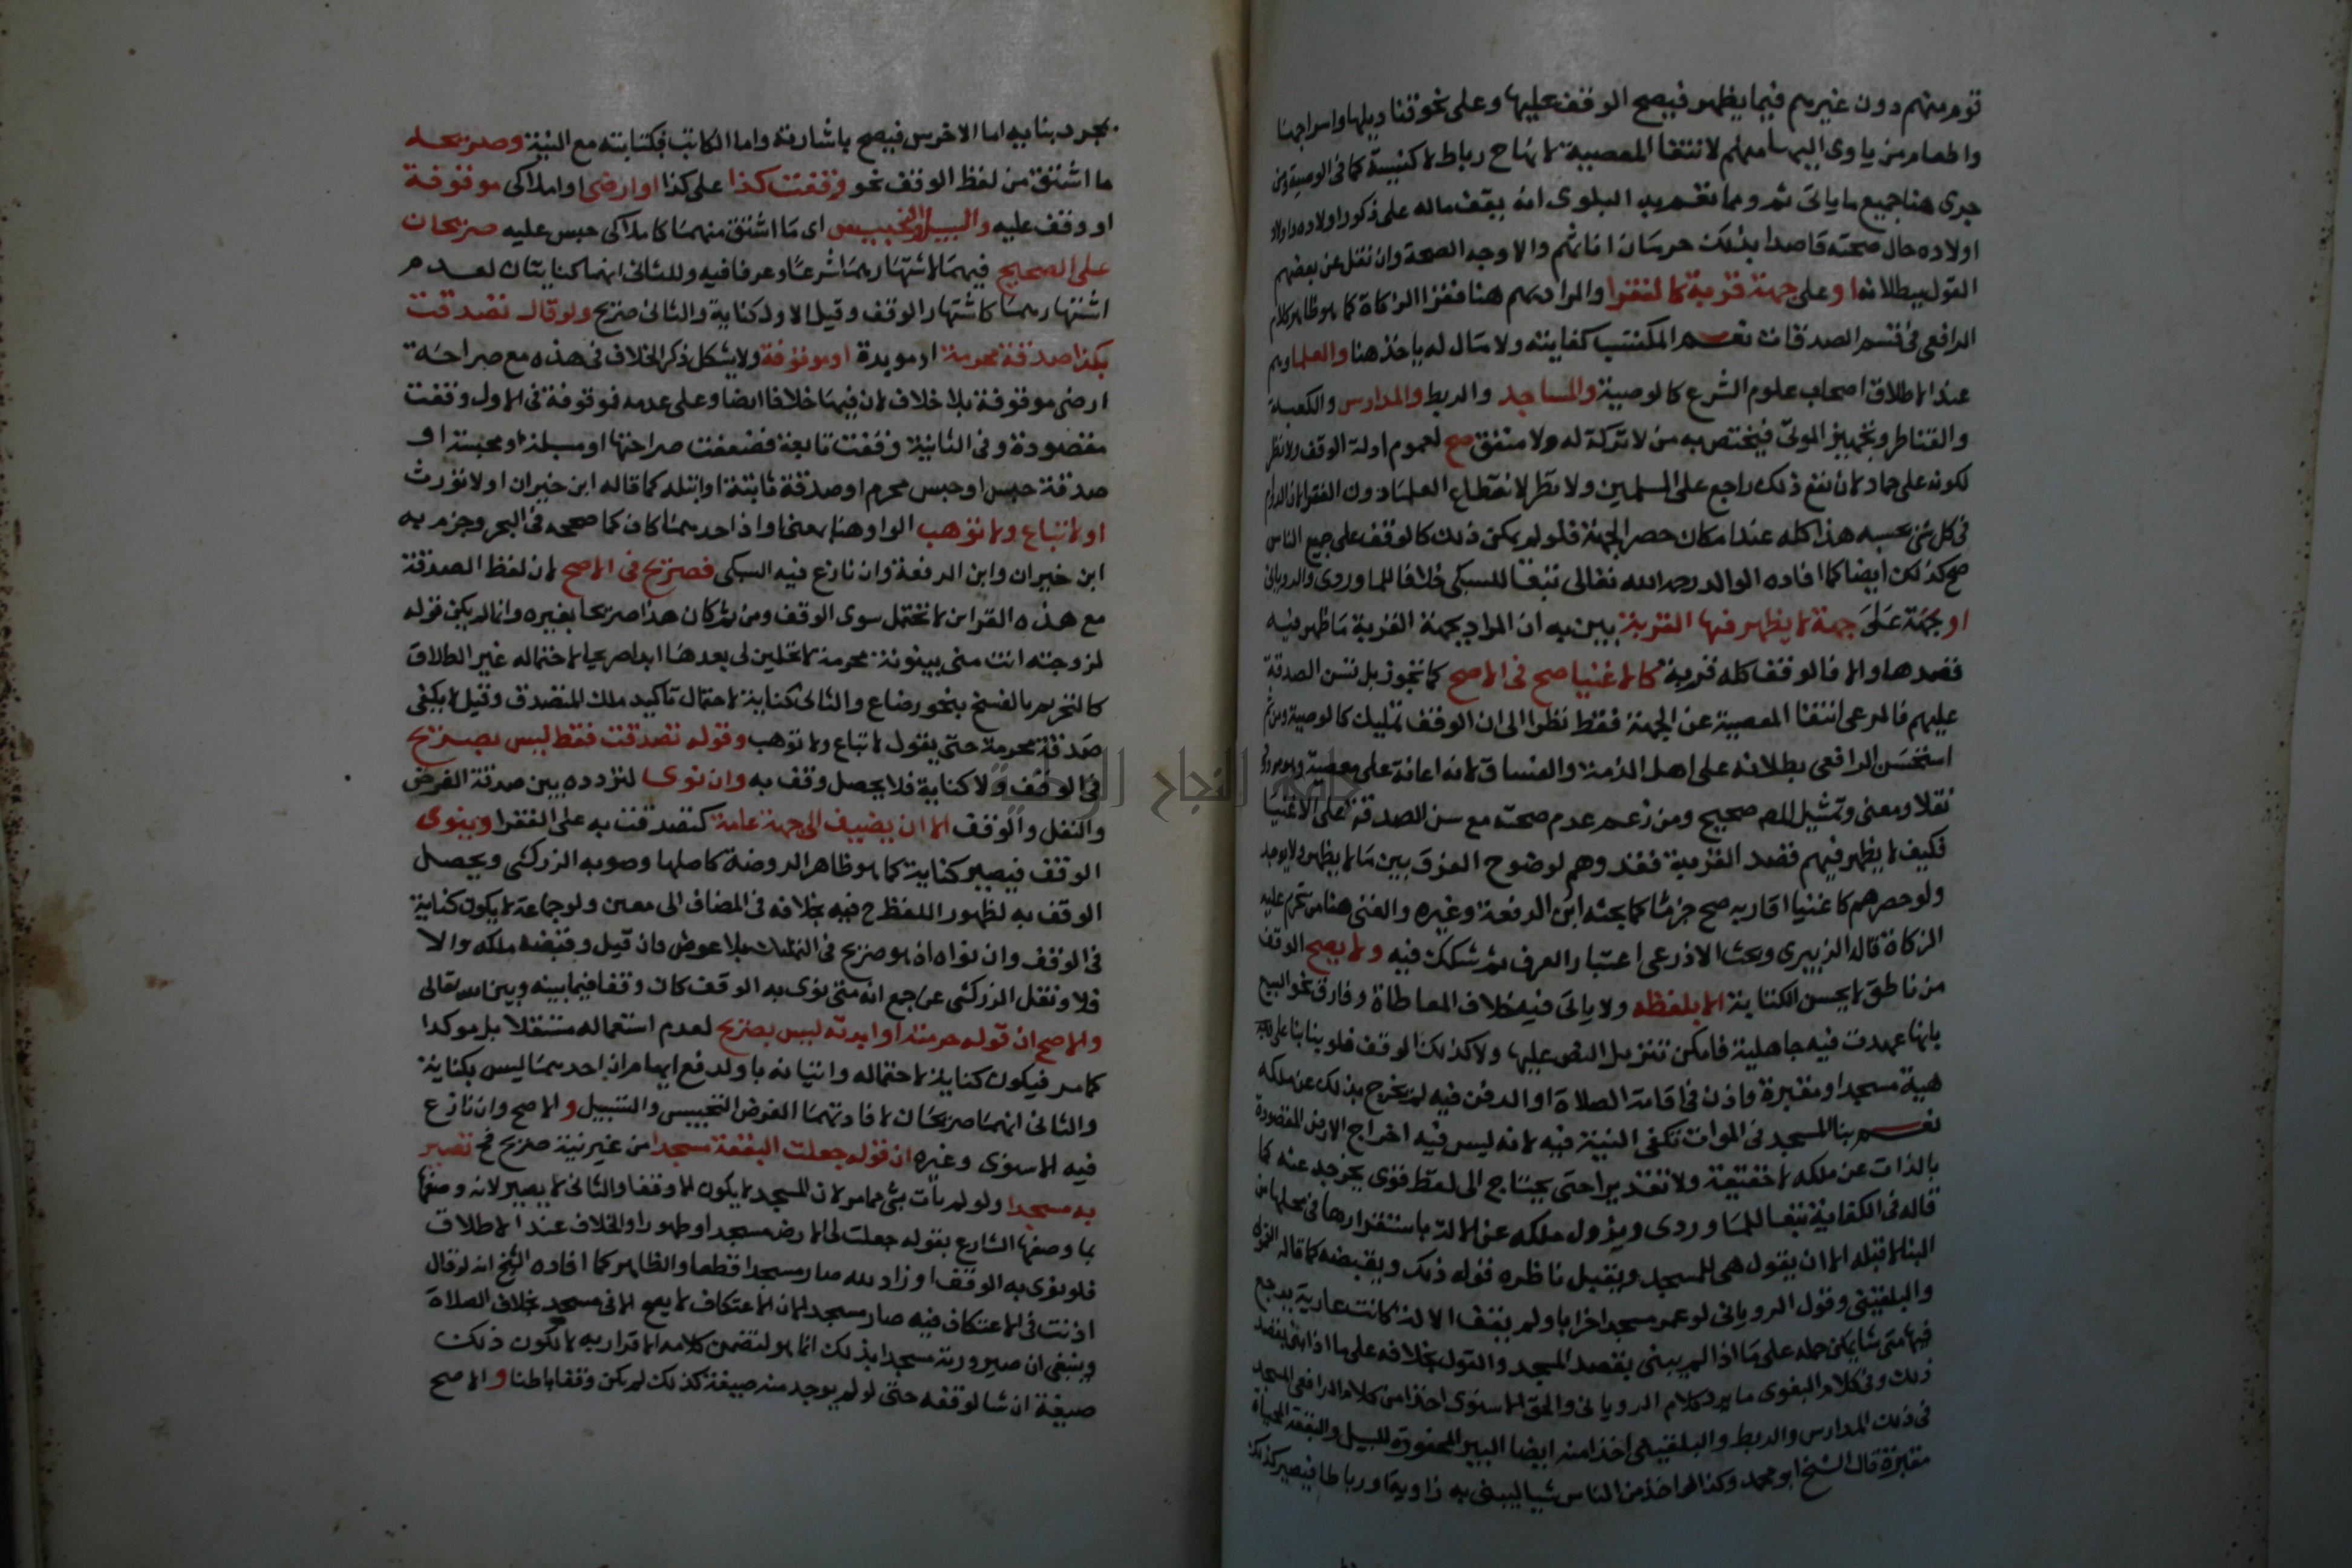 قوم منهم دون غيرهم فيما يظهر فيصح الوقف عليها وعلى نحو قناديلها واسراجها
واطعام من ياوى اليها منهم لانتفا المعصية لانها ح رباط لا كنيسة كما في الوصية ومن
جرى هنا جميع ما ياتى ثم ومما تعم به البلوى انه يقف ماله على ذكور اولاده واولاد
اولاده حال صحته قاصدا بذلك حرمان اناثهم والاوجه الصحة وان نقل عن بعضهم
القول ببطلانه او على جهة قربة كالفقرا والمراد بهم هنا فقرا الزكاة كما هو ظاهر كلام
الرافعي في قسم الصدقات نعم المكتسب كفايته ولا مال له ياخذ هنا والعلما وهم
عند الاطلاق اصحاب علوم الشرع كالوصية والمساجد والربط والمدارس والكعبة
والقناطر وتجهيز الموتى فيختص به من لا تركة له ولا منفق صح لعموم ادلة الوقف ولا نظر
لكونه على جماد لان نفع ذلك راجع على المسلمين ولا نظر لانقطاع العلما دون الفقرا لان الدوام
في كل شئ بحسبه هذا كله عند امكان حصر الجهة فلو لم يكن ذلك كالوقف على جميع الناس
صح كذلك ايضا كما افاده الوالد رحمه الله تعالى تبعا للسبكى خلافا للماوردى والرويانى
او جهة على جهة لا يظهر فيها القربة بين به ان المراد بجهة القربة ما ظهر فيه
قصدها والا فالوقف كله قربة كالاغنيا صح في الاصح كما تجوز بل تسن الصدقة
عليهم فالمرعى انتفا المعصية عن الجهة فقط نظرا الى ان الوقف تمليك كالوصية ومن ثم
استحسن الرافعى بطلانه على اهل الذمة والفساق لانه اعانة على معصية وهو مردود
نقلا ومعنى وتمثيل المص صحيح ومن زعم عدم صحته مع سن الصدقة على الاغنيا
فكيف لا يظهر فيهم قصد القربة فقد وهم لوضوح الفرق بين ما لا يظهر ولا يوجد
ولو حصرهم كاغنيا اقاربه صح جزما كما بحثه ابن الرفعة وغيره والغنى هنا من تحرم عليه
الزكاة قاله الزبيرى وبحث الاذرعى اعتبار العرف ثم شكك فيه ولا يصح الوقف
من ناطق لا يحسن الكتابة الا بلفظه ولا ياتى فيه خلاف المعاطاة وفارق نحو البيع
بانها عهدت فيه جاهلية فامكن تنزيل النص عليها ولا كذلك الوقف فلو بنا بنا على
هيئة مسجد او مقبرة واذن في اقامة الصلاة او الدفن فيه لم يخرج بذلك عن ملكه
نعم بنا المسجد في الموات تكفى النية فيه لانه ليس فيه اخراج الارض المقصودة
بالذات عن ملكه لا حقيقة ولا تقديرا حتى يحتاج الى لفظ قوى يخرجه عنه كما
قاله في الكفاية تبعا للماوردى ويزول ملكه عن الالة باستقرارها في محلها من
البنا لا قبله الا ان يقول هى للمسجد ويقبل ناظره قوله ذلك ويقبضه كما قاله
والبلقينى وقول الرويانى لو عمر مسجدا خرابا ولم يقف الالة كانت عارية يرجع
فيها متى شا يمكن حمله على ما اذا لم يبنى بقصد المسجد والقول بخلافه على ما اذا بنى بقصد
ذلك وفي كلام البغوى ما يرد كلام الرويانى والحق الاسنوى اخذا من كلام الرافعى المسجد
في ذلك المدارس والربط والبلقينى اخذا منه ايضا البير المحفورة للسبيل والبقعة المحياة
مقبرة قال الشيخ ابو محمد وكذا لو اخذ من الناس شيا ليبنى به زاوية او رباطا فيصير كذلك
بمجرد بنايه اما الاخرس فيصح باشارته واما الكاتب فبكتابته مع النية وصريحه
ما اشتق من لفظ الوقف نحو وقفت كذا على كذا او ارضى او املاكى موقوفة
او وقف عليه والسبيل والتحبيس اى ما اشتق منهما كاملاكى حبس عليه صريحان
على الصحيح فيهما لاشتهارهما شرعا وعرفا فيه وللثانى انهما كنايتان لعدم
اشتهارهما كاشتهار الوقف وقيل الاول كناية والثانى صريح ولو قال تصدقت
بكذا صدقة محرمة او مويدة او موقوفة ولا يشكل ذكر الخلاف في هذه مع صراحة
ارضى موقوفة بلا خلاف لان فيها خلافا ايضا وعلى عدمه فوقوفة في الاول وقعت
مقصودة وفي الثانية وقعت تابعة فضعفت صراحتها او مسبلة او محبسة او
صدقة حبس او حبس محرم او صدقة ثابتة او بتلة كما قاله ابن خيران او لا تورث
او لا تباع ولا توهب الواو هنا بمعنا او اذ احدهما كان كما صححه في البحر وجزم به
ابن خيران وابن الرفعة وان نازع فيه السبكى فصريح في الاصح لان لفظ الصدقة
مع هذه القراين لا تحتمل سوى الوقف ومن ثم كان هذا صريحا بغيره وانما لم يكن قوله
لزوجته انت منى بينونة محرمة لا تحلين لى بعدها ابدا صريحا لاحتماله غير الطلاق
كالتحريم بالفسخ بنحو رضاع والثانى كناية لاحتمال تاكيد ملك المتصدق وقيل لا يكفى
صدقة محرمة حتى يقول لا تباع ولا توهب وقوله تصدقت فقط ليس بصريح
في الوقف ولا كناية فلا يحصل وقف به وان نوى لتردده بين صدقة الفرض
والنفل والوقف الا ان يضيف الى جهة عامة كتصدقت به على الفقرا وينوى
الوقف فيصير كناية كما هو ظاهر الروضة كاصلها وصوبه الزركشى ويحصل
الوقف به لظهور اللفظ ح فيه بخلافه في المضاف الى معين ولو جماعة لا يكون كناية
في الوقف وان نواه اذ هو صريح في التمليك بلا عوض فان قيل وقبضه ملكه والا
فلا ونقل الزركشى عن جمع انه متى نوى به الوقف كان وقفا فيما بينه وبين الله تعالى
والاصح ان قوله حرمته او ابدته ليس بصريح لعدم استعماله مستقلا بل يوكدا
كما مر فيكون كناية لاحتماله واتيانه باو لدفع ايهام ان احدهما ليس بكناية
والثانى انهما صريحان لافادتهما الغرض التحبيس والتسبيل والاصح وان نازع
فيه الاسنوى وغيره ان قوله جعلت البقعة مسجدا من غير نية صريح فح تصير
به مسجدا ولو لم يات بشى مما مر لان المسجد لا يكون الا وقفا والثانى لا يصير لانه وصفها
بما وصفها الشارع بقوله جعلت لى الارض مسجدا وطهورا والخلاف عند الاطلاق
فلو نوى به الوقف او زاد لله صار مسجدا قطعا والظاهر كما افاده الشيخ انه لو قال
اذنت في الاعتكاف فيه صار مسجدا لان الاعتكاف لا يصح الا في مسجد بخلاف الصلاة
وينبغى ان صيرورته مسجدا بذلك انما هو لتضمن كلامه الاقرار به لا لكون ذلك
صيغة انشا لوقفه حتى لو لم يوجد منه صيغة كذلك لم يكن وقفا باطنا والاصح
جامعة النجاح الوطنية